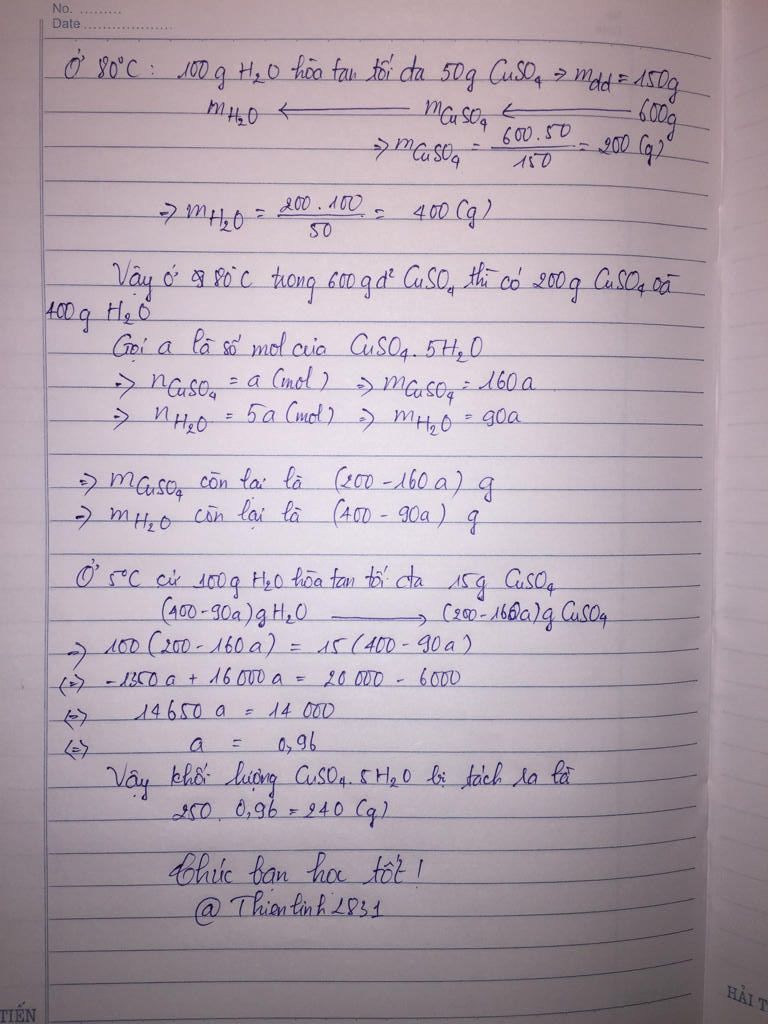 No. .........
Date....................
Ở 80°C : 100g H₂O hòa tan tối đa 50g CuSO₄ => mdd = 150g
mH₂O <——— mCuSO₄ <——— 600g
=> mCuSO₄ = 600.50/150 = 200 (g)
=> mH₂O = 200.100/50 = 400 (g)
Vậy ở 80°C trong 600g d² CuSO₄ thì có 200g CuSO₄ và
400g H₂O
Gọi a là số mol của CuSO₄.5H₂O
=> nCuSO₄ = a (mol) => mCuSO₄ = 160a
=> nH₂O = 5a (mol) => mH₂O = 90a
=> mCuSO₄ còn lại là (200-160a) g
=> mH₂O còn lại là (400-90a) g
Ở 5°C cứ 100g H₂O hòa tan tối đa 15g CuSO₄
(400-90a)g H₂O ———> (200-160a)g CuSO₄
=> 100(200-160a) = 15(400-90a)
(=) -1350a + 16000a = 20 000 - 6000
(=) 14650 a = 14 000
(=) a = 0,96
Vậy khối lượng CuSO₄.5H₂O bị tách ra là
250 . 0,96 = 240 (g)
Chúc bạn học tốt !
@ Thientinh2831
TIẾN
HẢI T